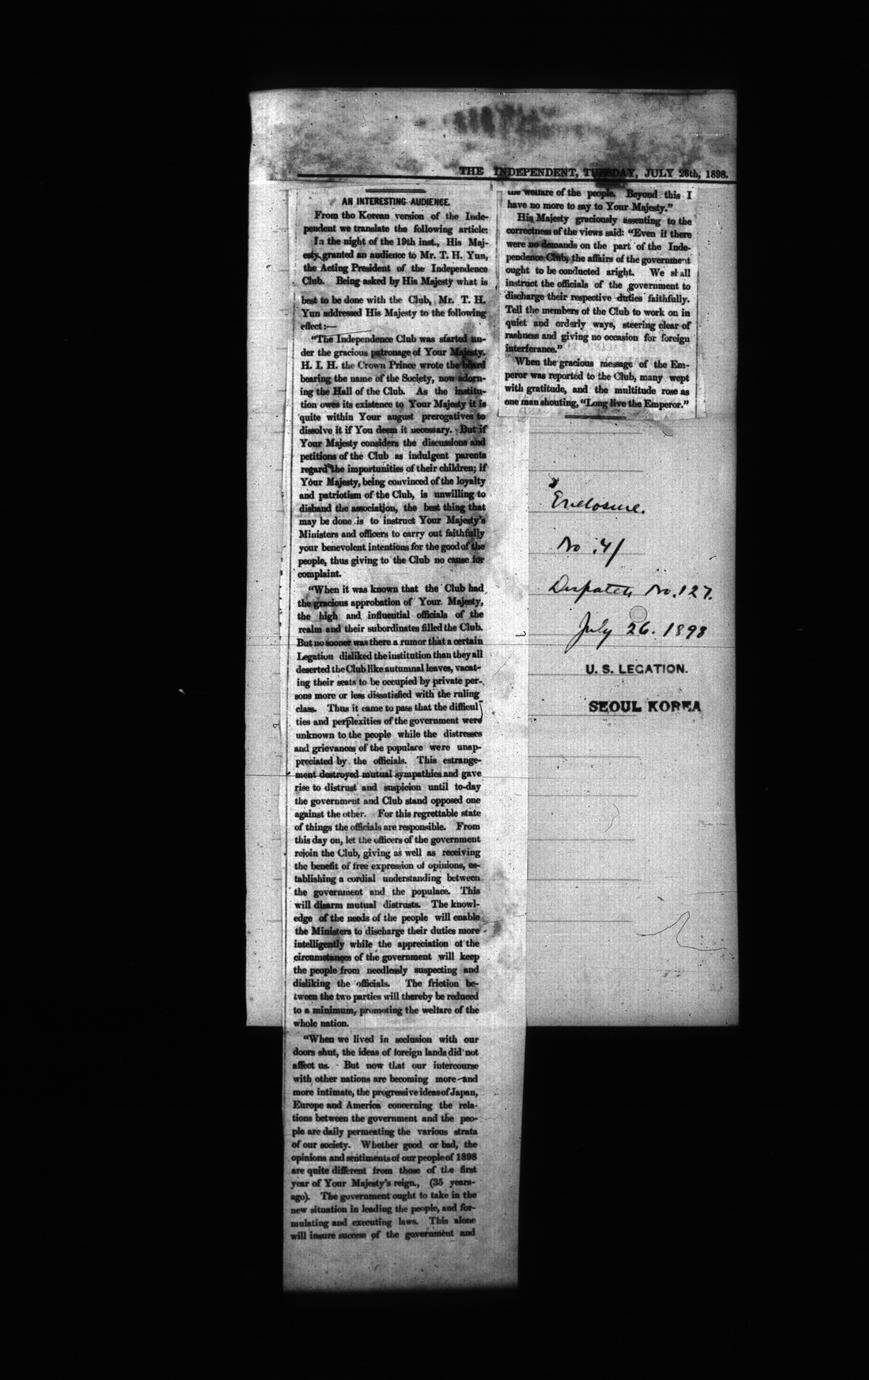 THE INDEPENDENT, TUESDAY, JULY 26th, 1898.
AN INTERESTING AUDIENCE.
From the Korean version of the Inde-
pendent we translate the following article:
In the night of the 19th inst., His Maj-
esty granted an audience to Mr. T. H. Yun,
the Acting President of the Independence
Club. Being asked by His Majesty what is
best to be done with the Club, Mr. T. H.
Yun addressed His Majesty to the following
effect:—
"The Independence Club was started un-
der the gracious patronage of Your Majesty.
H. I. H. the Crown Prince wrote the board
bearing the name of the Society, now adorn-
ing the Hall of the Club. As the institu-
tion owes its existence to Your Majesty it is
quite within Your august prerogatives to
dissolve it if You deem it necessary. But if
Your Majesty considers the discussions and
petitions of the Club as indulgent parents
regard the importunities of their children; if
Your Majesty, being convinced of the loyalty
and patriotism of the Club, is unwilling to
disband the association, the best thing that
may be done is to instruct Your Majesty's
Ministers and officers to carry out faithfully
your benevolent intentions for the good of the
people, thus giving to the Club no cause for
complaint.
"When it was known that the Club had
the gracious approbation of Your Majesty,
the high and influential officials of the
realm and their subordinates filled the Club.
But no sooner was there a rumor that a certain
Legation disliked the institution than they all
deserted the Club like autumnal leaves, vacat-
ing their seats to be occupied by private per-
sons more or less dissatisfied with the ruling
class. Thus it came to pass that the difficul
ties and perplexities of the government were
unknown to the people while the distresses
and grievances of the populace were unap-
preciated by the officials. This estrange-
ment destroyed mutual sympathies and gave
rise to distrust and suspicion until to-day
the government and Club stand opposed one
against the other. For this regrettable state
of things the officials are responsible. From
this day on, let the officers of the government
rejoin the Club, giving as well as receiving
the benefit of free expression of opinions, es-
tablishing a cordial understanding between
the government and the populace. This
will disarm mutual distrusts. The knowl-
edge of the needs of the people will enable
the Ministers to discharge their duties more
intelligently while the appreciation of the
circumstances of the government will keep
the people from needlessly suspecting and
disliking the officials. The friction be-
tween the two parties will thereby be reduced
to a minimum, promoting the welfare of the
whole nation.
"When we lived in seclusion with our
doors shut, the ideas of foreign lands did not
affect us. But now that our intercourse
with other nations are becoming more and
more intimate, the progressive ideas of Japan,
Europe and America concerning the rela-
tions between the government and the peo-
ple are daily permeating the various strata
of our society. Whether good or bad, the
opinions and sentiments of our people of 1898
are quite different from those of the first
year of Your Majesty's reign, (35 years-
ago). The government ought to take in the
new situation in leading the people, and for-
mulating and executing laws. This alone
will insure success of the government and
the welfare of the people. Beyond this I
have no more to say to Your Majesty."
His Majesty graciously assenting to the
correctness of the views said: "Even if there
were no demands on the part of the Inde-
pendence Club, the affairs of the government
ought to be conducted aright. We shall
instruct the officials of the government to
discharge their respective duties faithfully.
Tell the members of the Club to work on in
quiet and orderly ways, steering clear of
rashness and giving no occasion for foreign
interferance."
When the gracious message of the Em-
peror was reported to the Club, many wept
with gratitude, and the multitude rose as
one man shouting, "Long live the Emperor."
Enclosure.
No. 4/
Dispatch No. 127.
July 26. 1898
U. S. LEGATION.
SEOUL KOREA